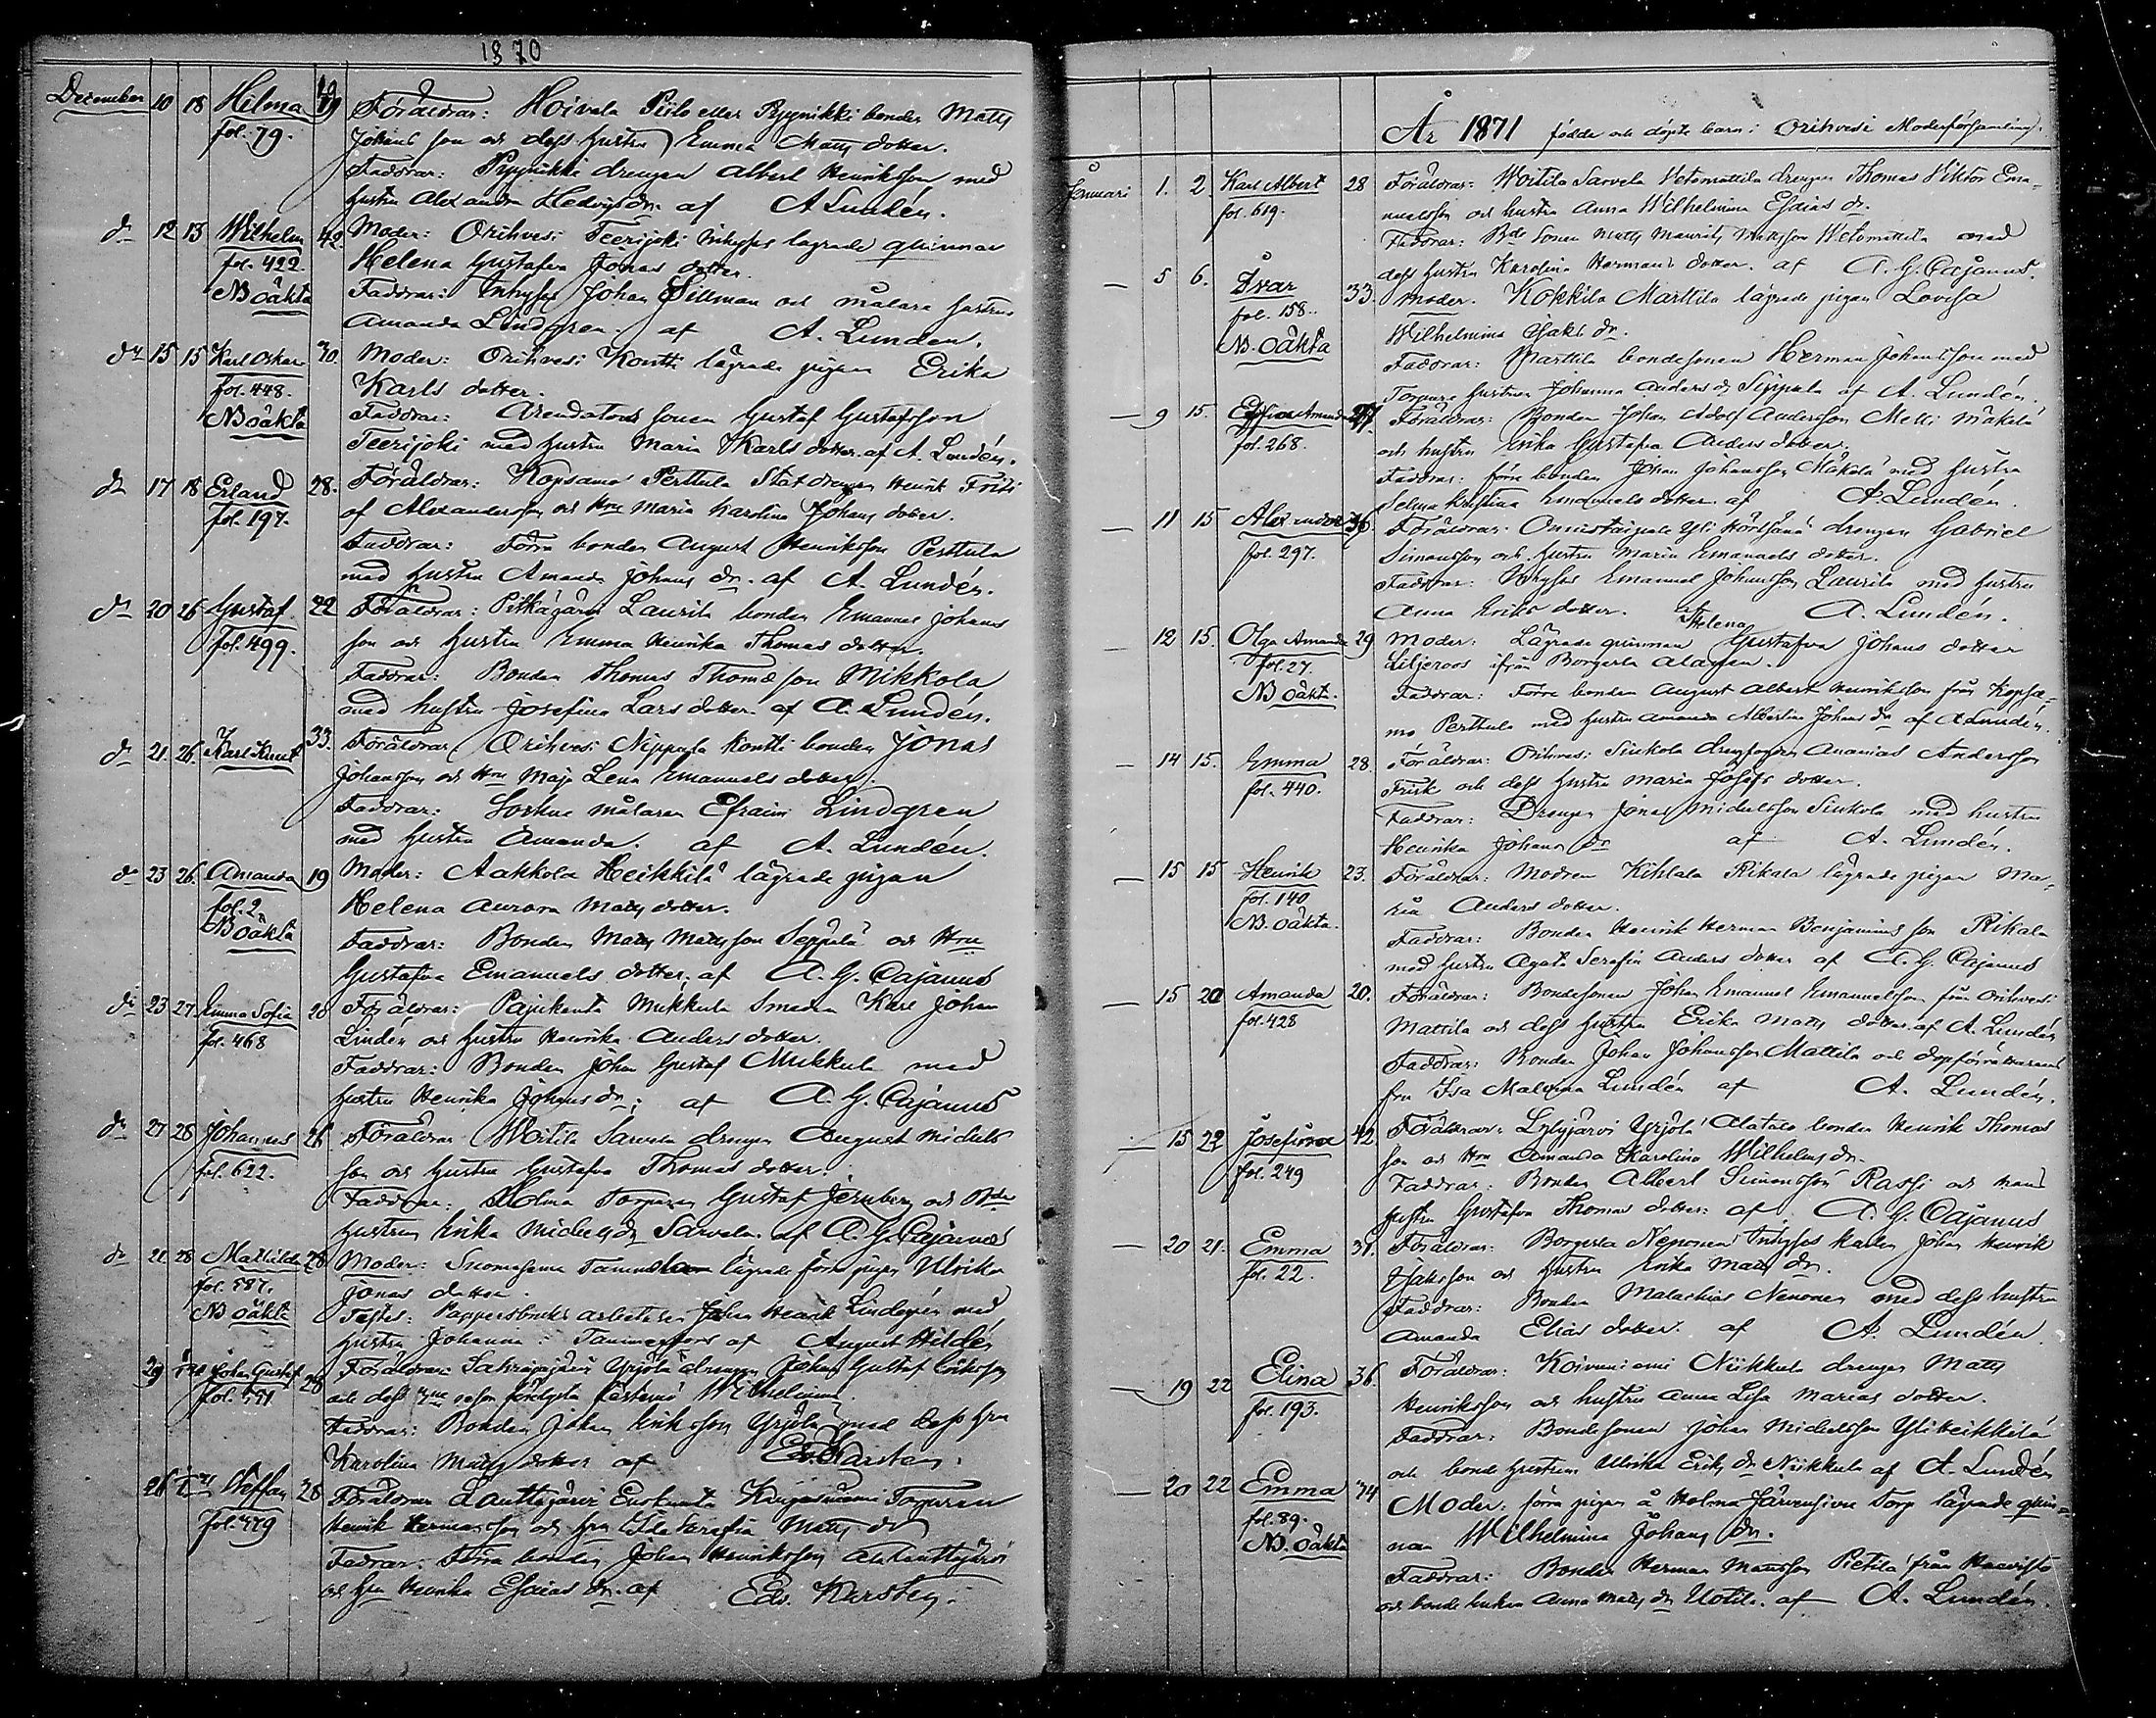 1870
December 10 18 Helma 19 Föräldrar: Hoivala Piilo eller Pyynikki bonden Matts
fol. 79. Johans son och dess hustru Emma Matts dotter.
Faddrar: Pyynikki drengen Albert Henriksson med
hustru Alexandra Hedvigs dr. af A Lundén.
dn 12 13 Wilhelm 42 Moder: Orihvesi Teerijoki inhyses lägrade quinnan
fol. 422. Helena Gustafva Jonas dotter.
NB oäkta Faddrar: Inhyses Johan Sillman och målare hustrun
Amanda Lindgren af A. Lunden.
dn 15 15 Karl Oskar 30. Moder: Orihvesi Kontti lägrade pigan Erika
fol. 448. Karls dotter.
NB oäkta Faddrar: Arendators sonen Gustaf Gustafsson
Teerijoki med hustru Maria Karls dotter. af A. Lundén.
dn 17 18 Erland 28. Föräldrar: Kopsamo Perttula Statdrengen Henrik Frits
fol. 197. af Alexandersson och Hru Maria Karolina Johans dotter.
Faddrar: Förre bonden August Henriksson Perttula
med hustru Amanda Johans dr. af A. Lundén.
dn 20 26 Gustaf 22 Föräldrar: Pitkäjärvi Laurila bonden Emanuel Johans
fol. 499. son och hustru Emma Henrika Thomas dotter.
Faddrar: Bonden Thomas Thomæson Mikkola
med hustru Josefina Lars dotter. af A. Lundén.
dn 21. 26. Karl Knut 33. Föräldrar: Orihvesi Nippula Kontti bonden Jonas
Johansson och Hru Maja Lena Emanuels dotter.
Faddrar: Sockne målaren Efraim Lindgren
med hustru Amanda. af A. Lundén.
dn 23 26. Amanda 19 Moder: Aakkola Heikkilä lägrade pigan
fol. 2. Helena Aurora Matts dotter.
NB oäkta Faddrar: Bonden Matts Mattsson Seppälä och Hru
Gustafva Emanuels dotter; af A. G. Cajanus
dn 23 27 Emma Sofia 20 Föräldrar: Pajukanta Mukkula Smeden Karl Johan
fol. 468 Lindén och hustru Henrika Anders dotter.
Faddrar: Bonden Johan Gustaf Mukkula med
hustru Henrika Johans dr; af A. G. Cajanus
dn 27 28 Johannes 26 Föräldrar: Woitila Sarvela drengen August Michels
fol. 622. son och hustru Gustafva Thomas dotter.
Faddrar: Holma Torparen Gustaf Jernberg och Bde
hustrun Erika Michels dr Sarvela. af A. G. Cajanus
dn 21 28 Mathilda 28 Moder: Suomasema lägrade förra pigan Ulrika
fol. 587. Jonas dotter.
NB oäkta Testes: Pappersbruks arbetaren Johan Henrik Lindgrén med
hustru Johanna i Tammerfors af August Hildén
29 Johan Gustaf 28 Föräldrar: Yrjölä drengen Johan Gustaf Eriksson
fol. 551 och dess Wilhelmina
Faddrar: Bonden Johan Eriksson Yrjölä med dess hru
Karolina Matts dotter af Edv. Karsten.
26 Steffan 28 Föräldrar Lauttajärvi Torparen
fol. 479 Henrik Hermansson och hru Ida Serafia Matts dr
Fadrar: Förra bonden Johan Henriksson
och hru Henrika Esaias dr. af Edv. Karsten.
År 1871 födde och döpte barn i Orihvesi Moderförsamling.
Januari 1. 2 Karl Albert 28 Föräldrar: Woitila Sarvela Vetomattila drengen Thomas Viktor Ema-
fol. 619. nuelsson och hustru Anna Wilhelmina Esaias dr.
Faddrar: Bde Sonen Matts Maurits Mattsson Wetomattila med
dess hustru Karolina Hermans dotter. af A. G. Cajanus.
— 5 6. Ivar 33. Moder. Kokkila Marttila lägrade pigan Lovisa
fol. 158. Wilhelmina Isaks dr.
NB. oäkta Faddrar: Marttila bondesonen Herman Johansson med
Torpare hustrun Johanna Anders dr Seppälä af A. Lundén.
— 9 15. Amanda 27 Föräldrar: Bonden Johan Adolf Andersson Melli Mäkelä
fol. 268. och hustru Erika Gustafva Anders dotter.
Faddrar: förre bonden Johan Johansson Mäkelä med hustru
Selma Kristina Emanuels dotter. af A. Lundén.
— 11 15 Alexander 36 Föräldrar: Onnistaipale Yli Hörtsänä drengen Gabriel
fol. 297. Simonsson och hustru Maria Emanuels dotter.
Faddrar: Inhyses Emanuel Johansson Laurila med hustru
Anna Eriks dotter. af A. Lundén.
— 12 15. Olga Amanda 29 Moder: Lägrade quinnan Helena Gustafva Johans dotter
fol. 27. Liljeroos ifrån Borgerla Alanen.
NB oäkta. Faddrar: Förre bonden August Albert Henriksson från Kopsa-
mo Perttula med hustru Amanda Albertina Johans dr af A Lundén.
— 14 15. Emma 28. Föräldrar: Orihvesi Siukola drengfogden Ananias Andersson
fol. 440. Frisk och dess hustru Maria Josefs dotter.
Faddrar: Drengen Jonas Michelsson Siukola med hustru
Henrika Johans dr af A. Lundén.
— 15 15 Henrik 23. Föräldrar: Modren Kihlala Rikala lägrade pigan Ma-
fol. 140 ria Anders dotter.
NB. oäkta. Faddrar: Bonden Henrik Herman Benjamins son Rikala
med hustru Agata Serafia Anders dotter af A. G. Cajanus
— 15 20 Amanda 20. Föräldrar: Bondesonen Johan Emanuel Emanuelsson från Orihvesi
fol. 428 Mattila och dess hustru Erika Matts dotter. af A. Lundén
Faddrar: Bonden Johan Johansson Mattila och dopförrättarens
fru Isa Malvina Lundén af A. Lundén.
— 15 22 Josefina 42 Föräldrar: Lylyjärvi Yrjölä Alatalo bonden Henrik Thomas
fol. 249 son och Hru Amanda Karolina Wilhelms dr.
Faddrar: Bonden Albert Simonsson Rassi och hans
hustru Gustafva Thomas dotter: af A. G. Cajanus
— 20 21. Emma 31. Föräldrar: Borgerla Nenonen Inhyses karlen Johan Henrik
fol. 22. Isaksson och hustru Erika Matts dr.
Faddrar: Bonden Malachias Nenonen med dess hustru
Amanda Elias dotter. af A. Lundén.
— 19 22 Elina 36. Föräldrar: Koivuniemi Niikkula drengen Matts
fol. 193. Henriksson och hustru Anna Lisa Marias dotter.
Faddrar: Bondesonen Johan Michelsson Yliheikkilä
och bonde hustrun Ulrika Eriks dr Niikkula af A. Lundén
— 20 22 Emma 74 Moder: förra pigan å Holma Järvensivu Torp lägrade quin-
fol. 89. nan Wilhelmina Johans dr.
NB. oäkta Faddrar: Bonden Herman Mattsson Pietilä från Haavisto
och bonde enkan Anna Matts dr Uotila. af A. Lundén.